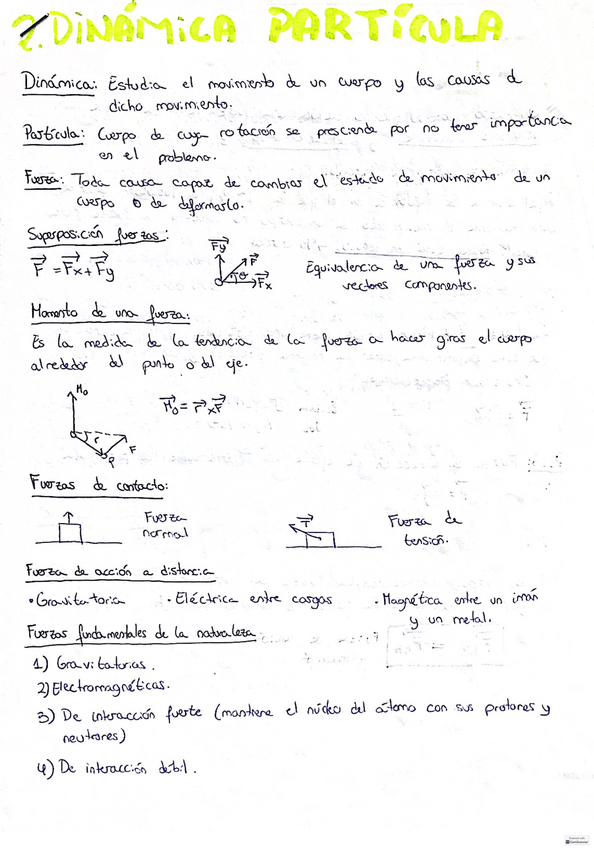 2. DINÁMICA PARTÍCULA
Dinámica: Estudia el movimiento de un cuerpo y las causas d
dicho movimiento.
Partícula: Cuerpo de cuya rotación se prescinde por no tener importancia
en el problema.
Fuerza: Toda causa capaz de cambiar el estado de movimiento de un
cuerpo o de deformarlo.
Superposición fuerzas:
F = Fx + Fy
Fy F θ Fx
Equivalencia de una fuerza y sus
vectores componentes.
Momento de una fuerza:
Es la medida de la tendencia de la fuerza a hacer girar el cuerpo
alrededor del punto o del eje.
Mo
Mo = r x F
r F
P
Fuerzas de contacto:
Fuerza
normal
T
Fuerza de
tensión.
Fuerza de acción a distancia
• Gravitatoria • Eléctrica entre cargas • Magnética entre un imán
y un metal.
Fuerzas fundamentales de la naturaleza
1) Gravitatorias.
2) Electromagnéticas.
3) De interacción fuerte (mantiene el núcleo del átomo con sus protones y
neutrones)
4) De interacción débil.
CamScanner